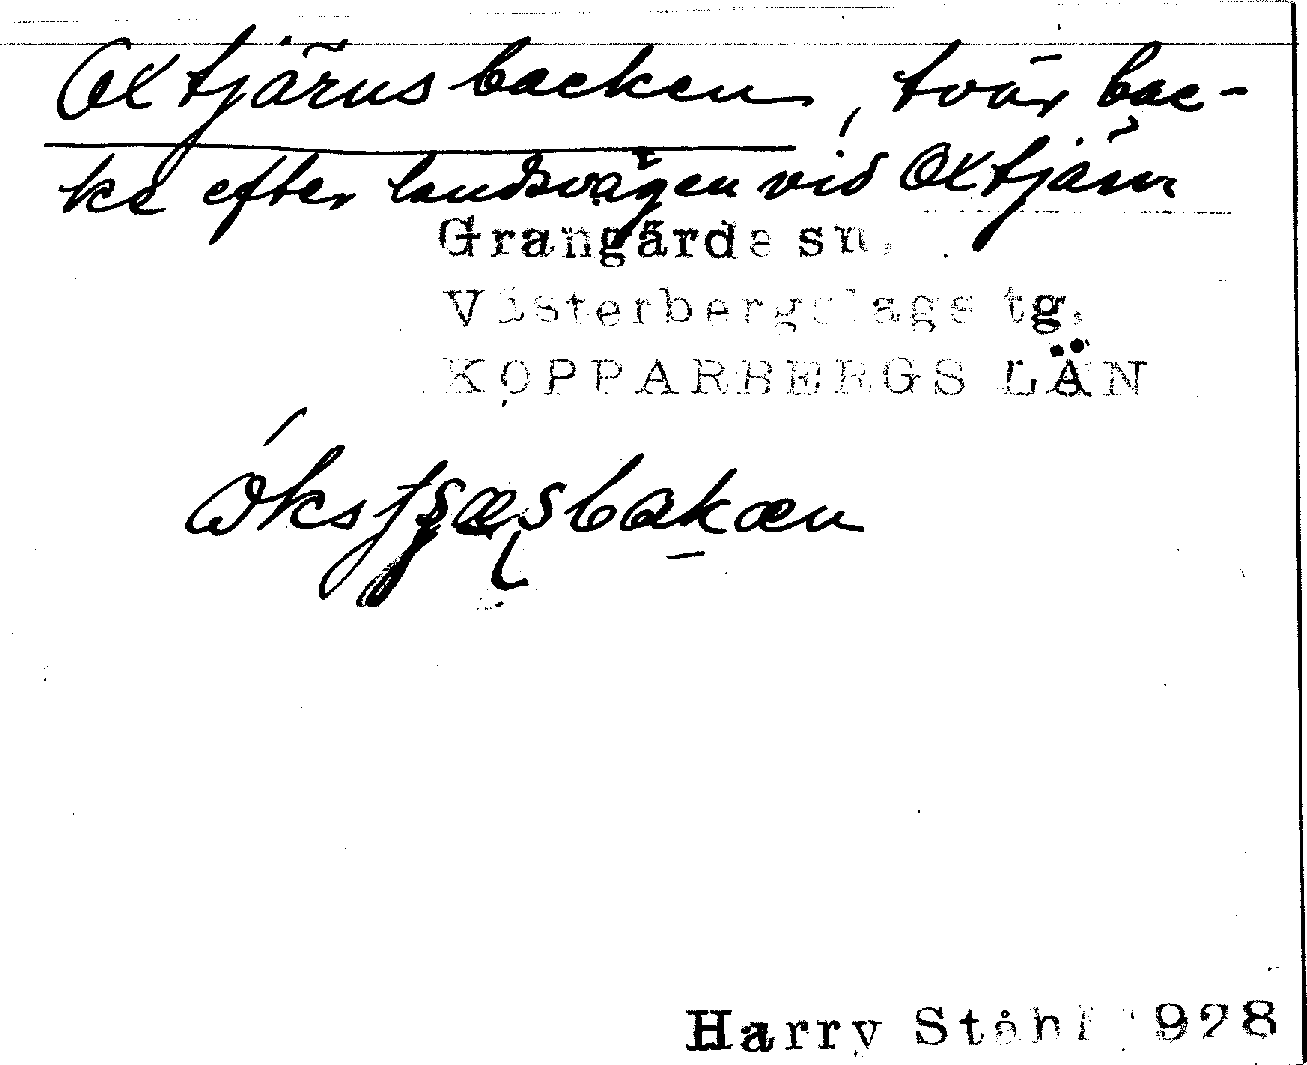 Oxtjärnsbacken, tvär bac-
ke efter landsvägen vid Oxtjärn
Grangärde sn.
Västerbergslags tg.
KOPPARBERGS LÄN
Harry Ståhl 1928